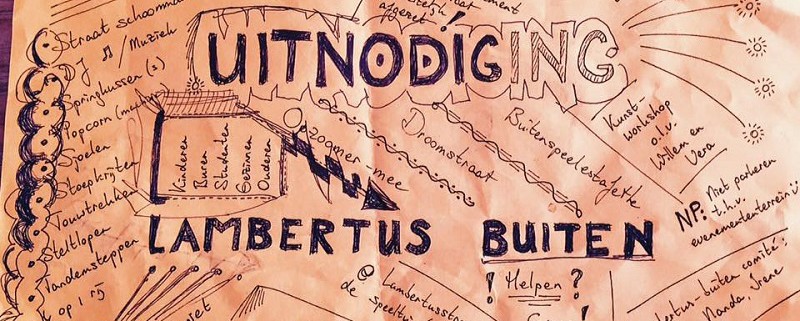 Straat schoonma
DJ / Muziek
Springkussen (s)
Popcorn
Sjoelen
Stoepkrijten
Touwtrekken
Steltlopen
Tandemsteppen
4 op 1 rij
afgezet!
UITNODIGING
Kinderen
Buren
Studenten
Gezinnen
Ouderen
Ozogmer-mee
Droomstraat
Buitenspeelestafette
Kunst-
workshop
o.l.v.
Willem en
Vera
NP: Niet parkeren
t.h.v.
evenemententerrein
LAMBERTUS BUITEN
! Helpen ?
@ Lambertusstr
de speeltu
ertus-buiten comité:
Nanda, Irene